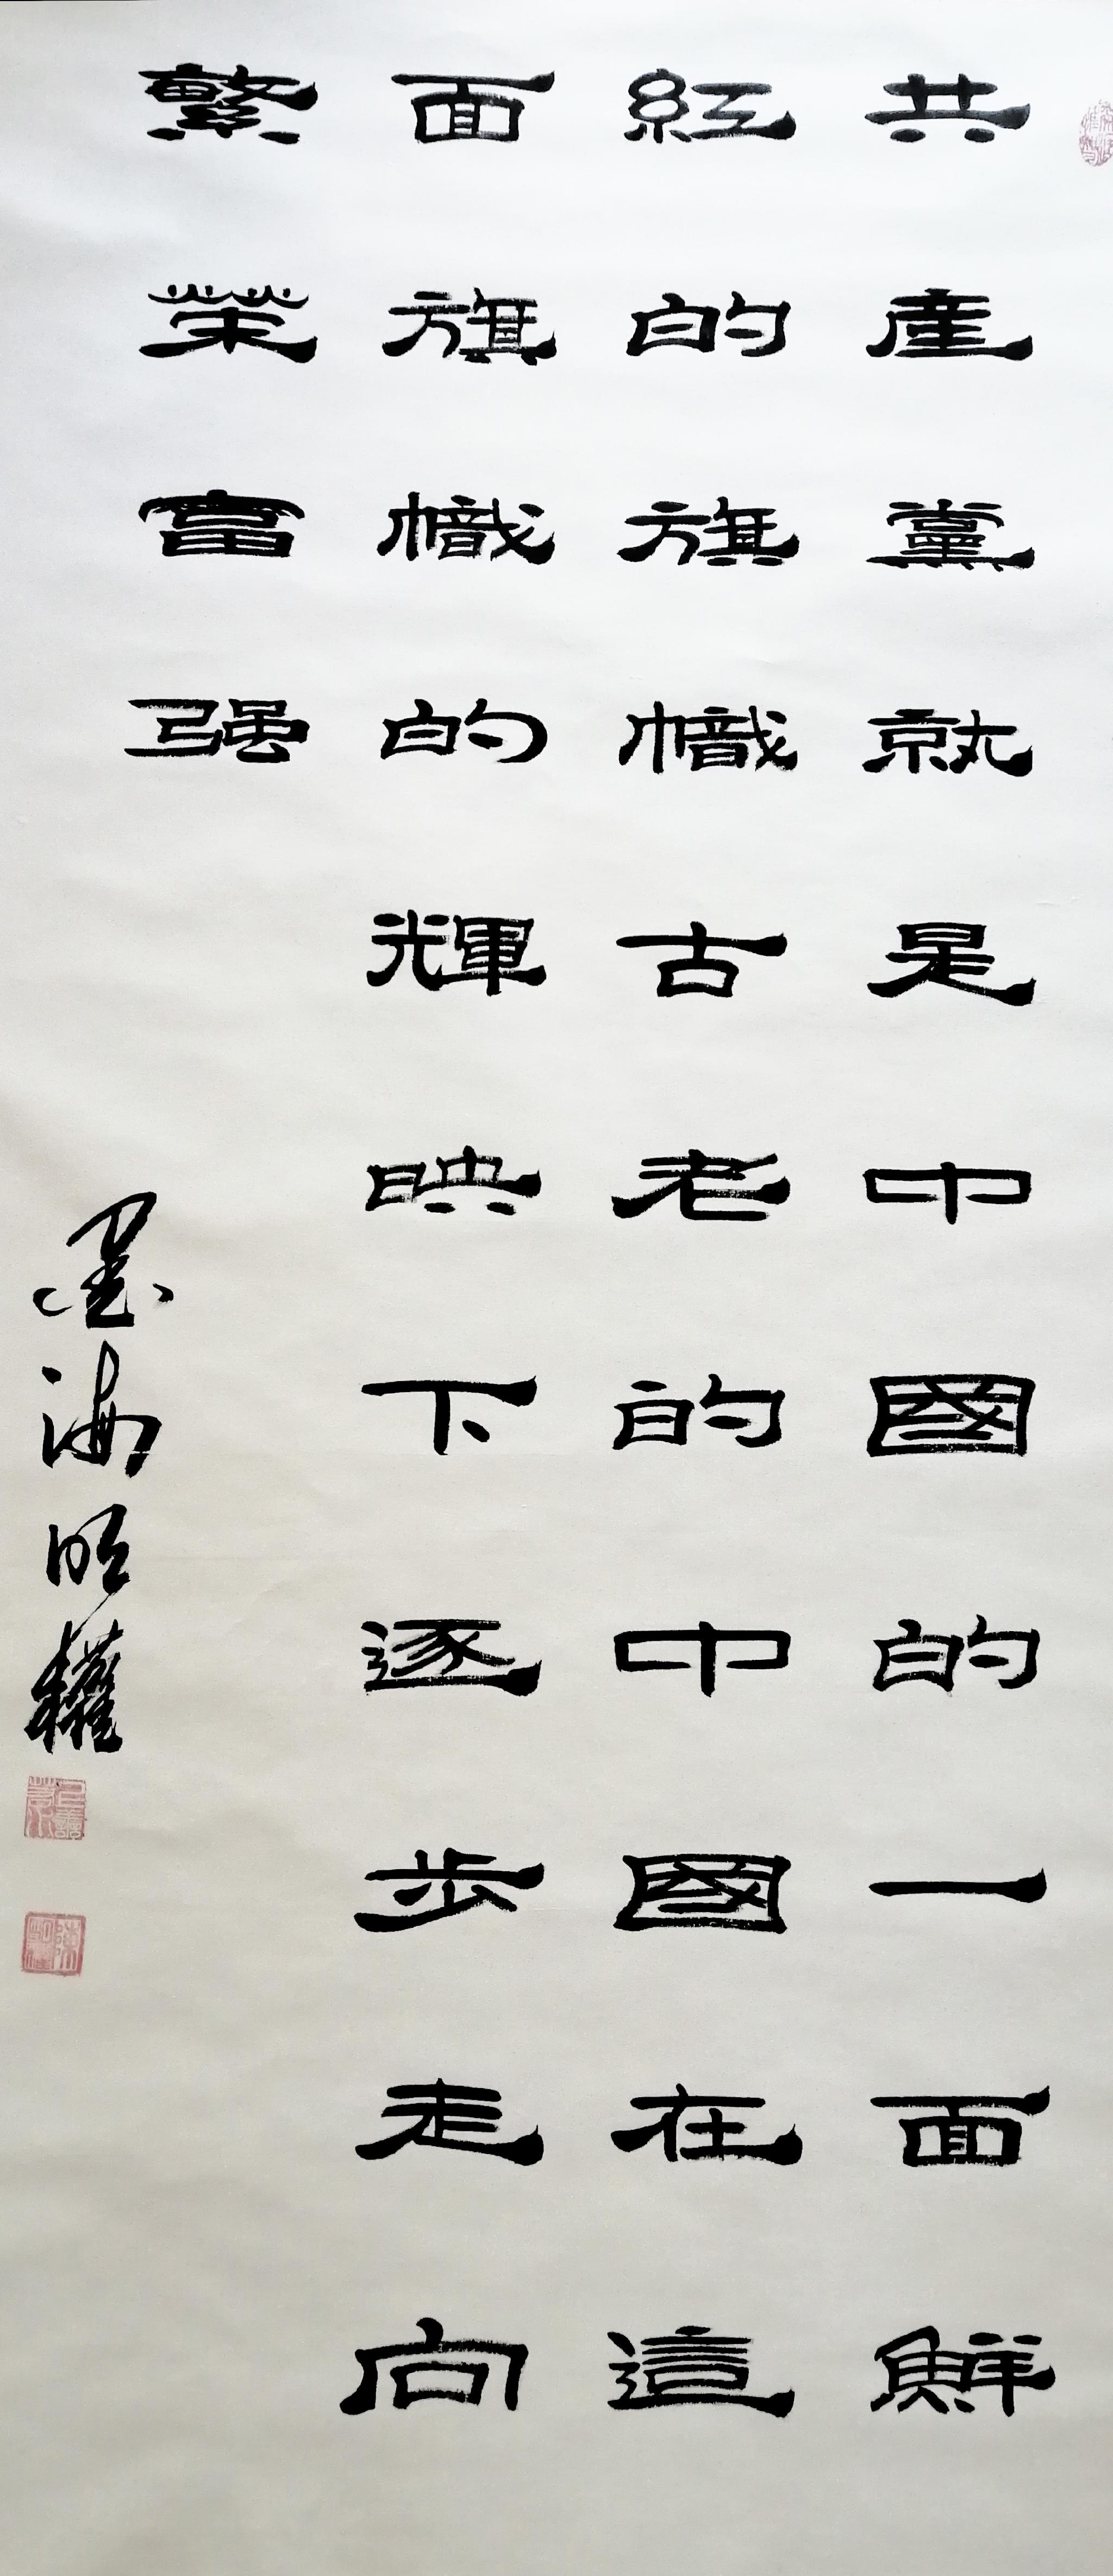 共產黨就是中國的一面鮮
紅的旗幟古老的中國在這
面旗幟的輝映下逐步走向
繁榮富强
墨海明權